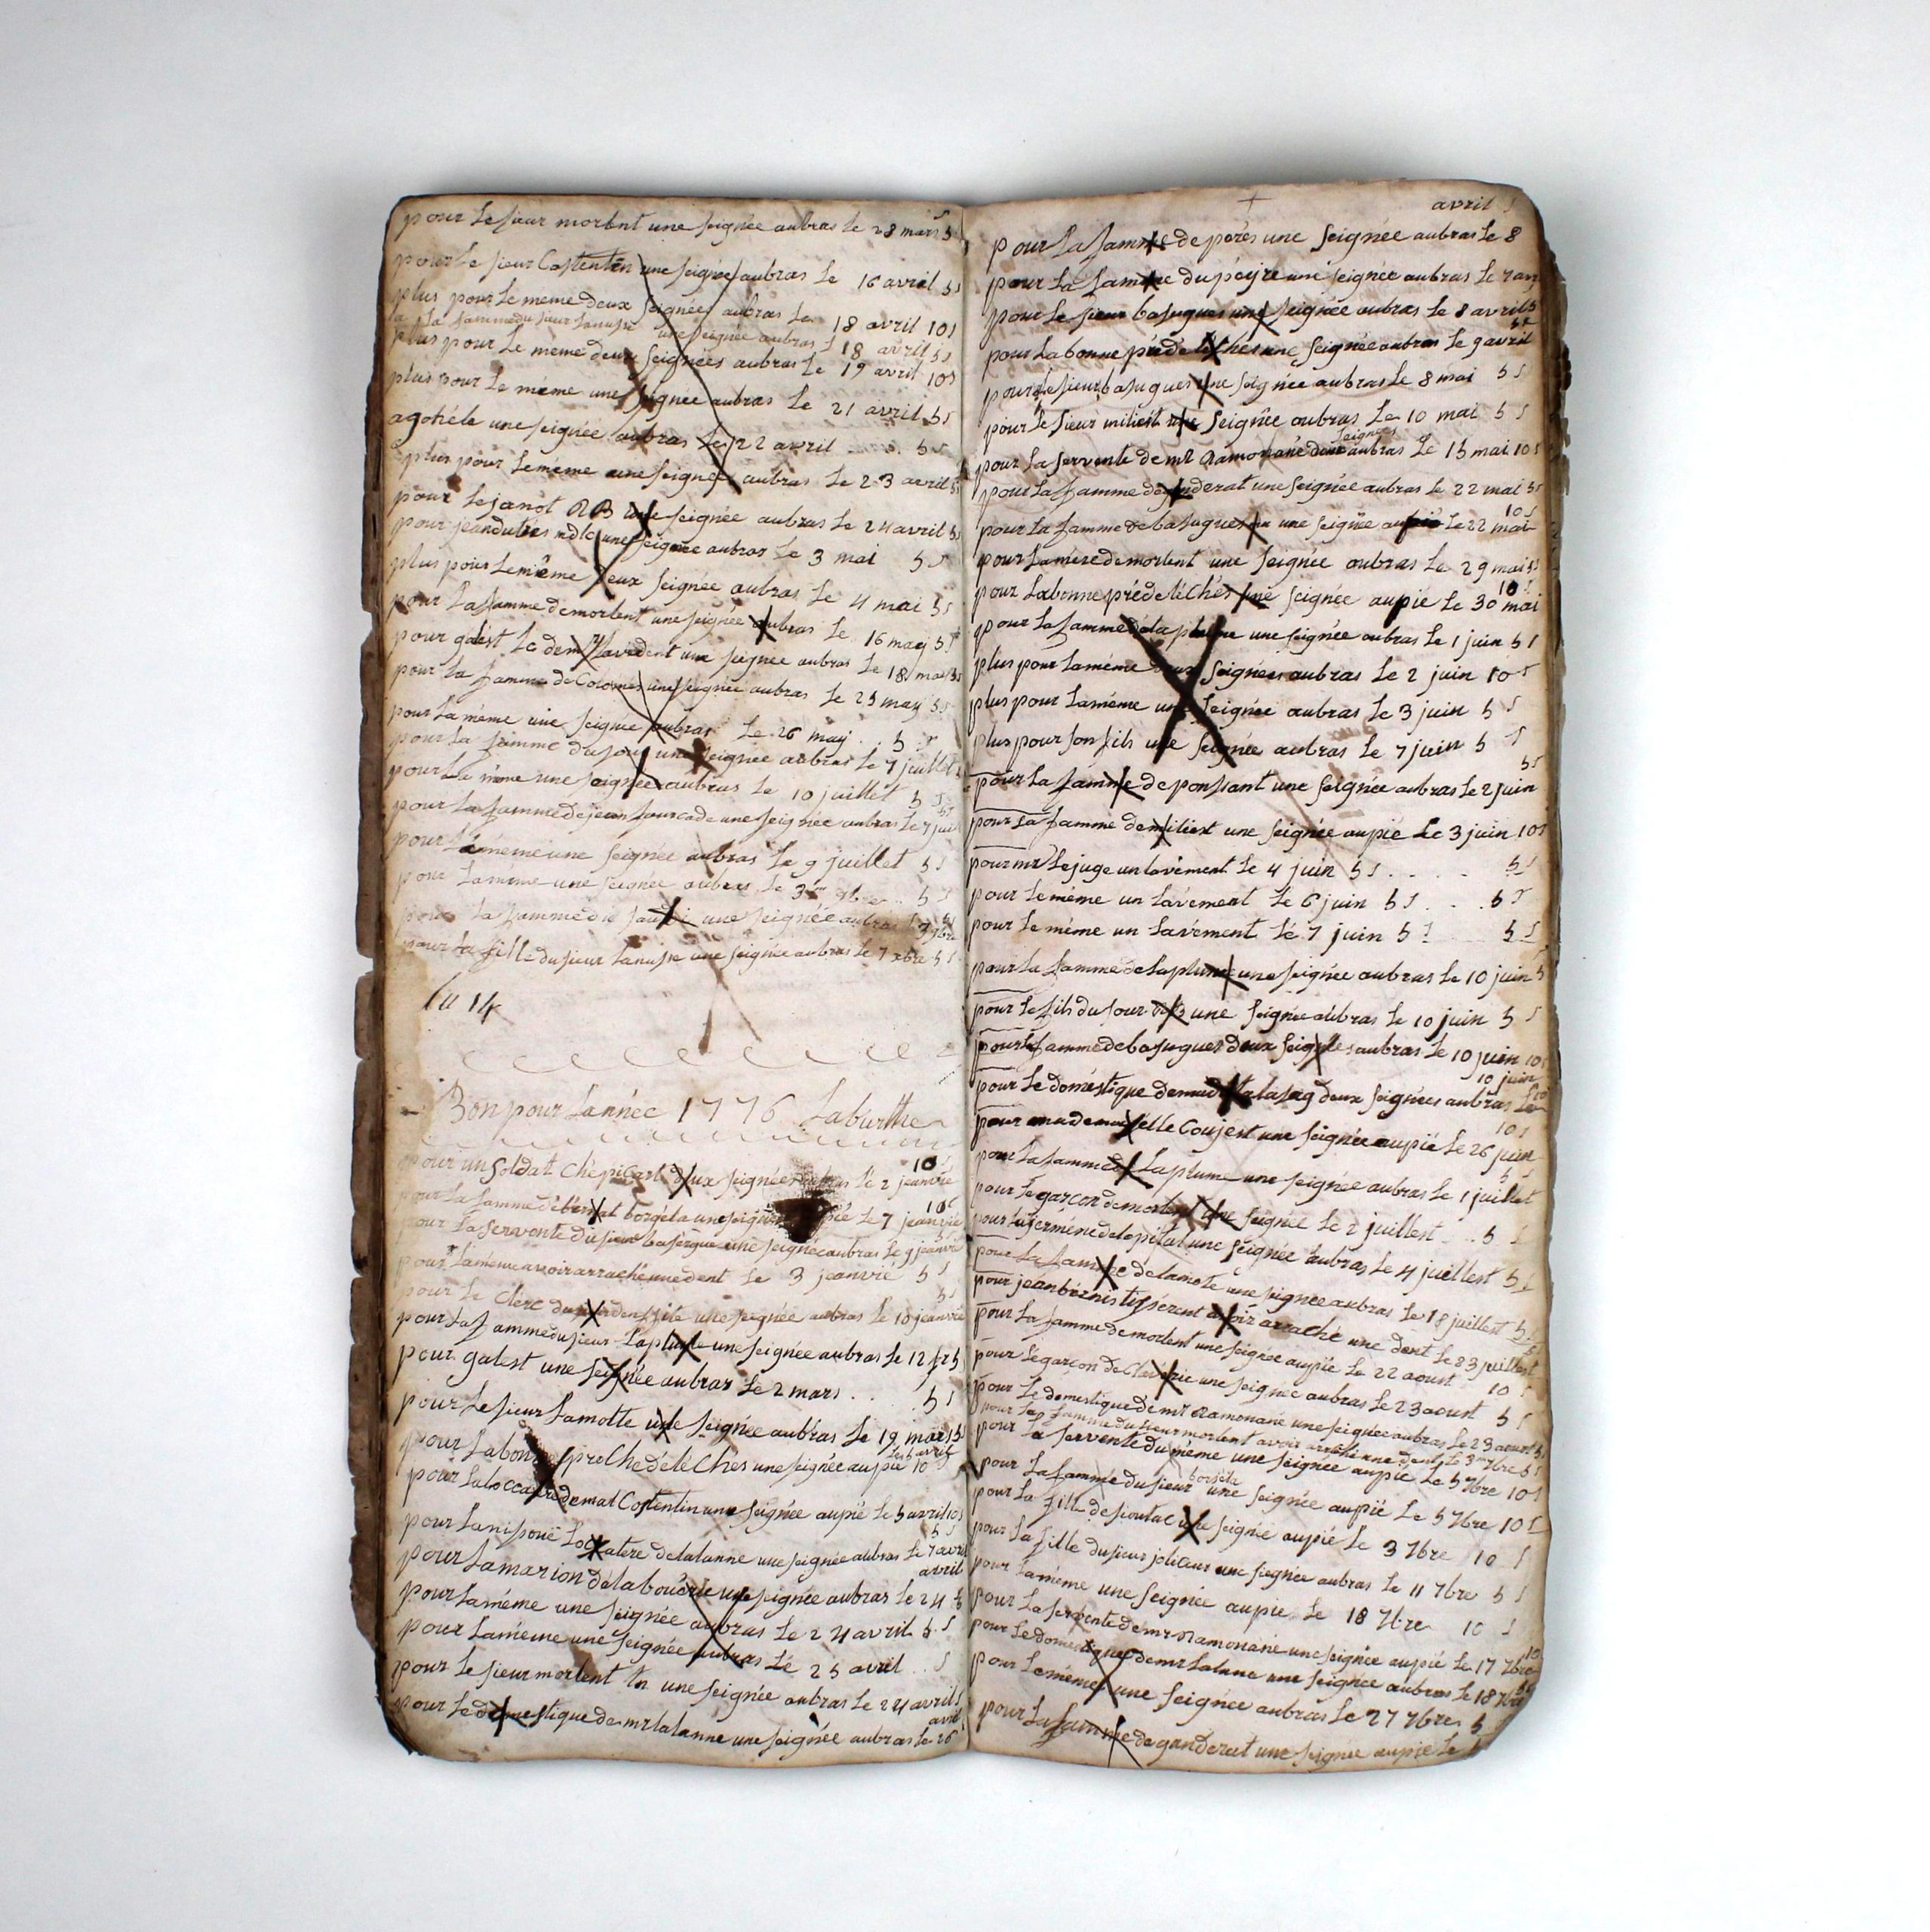 pour le sieur morlent une seignée aubras le 28 mars 5 s
pour le sieur Costentin une seignée aubras le 16 avril 5 s
plus pour le meme deux seignées aubras le 18 avril 10 s
la famme du sieur lanusse une seignée aubras 18 avril 5 s
plus pour le meme deux seignées aubras le 19 avril 10 s
plus pour le méme une seignée aubras le 21 avril 5 s
une seignée aubras le 22 avril 5 s
plus pour le méme une seignée aubras le 23 avril 5
pour le janot une seignée aubras le 24 avril 5 s
pour une seignée aubras le 3 mai 5 s
plus pour le méme deux seignée aubras le 4 mai 5 s
pour la famme de morlent une seignée aubras le 16 may 5 s
pour galest une seignée aubras le 18 mai 5 s
pour la famme de Colomes une seignée aubras le 25 may 5 s
pour la méme une seignée aubras le 26 may 5 s
pour la famme du four une seignée aubras le 7 juillet
pour la méme une seignée aubras le 10 juillet 5 s
pour la famme de jean fourcade une seignée aubras le 7 juil
pour la méme une seignée aubras le 9 juillet 5 s
pour la méme une seignée aubras le 3 5 s
pour la famme une seignée aubras
pour la fille du sieur lanusse une seignée aubras le 7 xbre 5 s
lu 14
Bon pour lannée 1776 Laburthe
10 s
pour un soldat deux seignées aubras le 2 jeanvié
10 s
pour la famme de une seignée pié le 7 jeanvié
pour la servente du sieur une seignée aubras le 9 jeanvié
pour la méme avoir arraché une dent le 3 jeanvié 5 s
5 s
pour le clerc une seignée aubras le 10 jeanvié
pour la famme du sieur Laplume une seignée aubras le 12 5
pour galest une seignée aubras le 2 mars 5 s
pour le sieur Lamotte une seignée aubras le 19 mars 5
pour la bonne proche de léChes une seignée aupié 10
pour la Costentin une seignée aupié le 5 avril 10 s
5 s
pour delalanne une seignée aubras le 7 avril
avril
pour la marion de la bouérie une seignée aubras le 24 5
pour la méme une seignée aubras le 24 avril 5 s
pour la méme une seignée aubras lé 25 avril s
pour le sieur morlent une seignée aubras le 24 avril
avril
pour le domestique de mr lalanne une seignée aubras le 26
avril
pour la famme de porés une seignée aubras le 8
pour la famme du péyre une seignée aubras le 7
pour le sieur basugues une seignée aubras le 8 avril 5
pour la bonne pré de léChes une seignée aubras le 9 avril
pour le sieur basugues une seignée aubras le 8 mai 5 s
pour le sieur miliest une seignée aubras le 10 mai 5 s
seignées
pour la servente de mr Ramonané deux aubras le 15 mai 10 s
pour la famme de ganderat une seignée aubras le 22 mai 5 s
10 s
pour la famme de basugues une seignée aupié le 22 mai
pour la mére de morlent une seignée aubras le 29 mai 5 s
10 s
pour la bonne pré de léChés une seignée aupié le 30 mai
pour la famme de la plume une seignée aubras le 1 juin 5 s
plus pour la méme deux seignées aubras le 2 juin 10 s
plus pour la méme une seignée aubras le 3 juin 5 s
plus pour son fils une seignée aubras le 7 juin 5 s
5 s
pour la famme de ponsant une seignée aubras le 2 juin
pour la famme de miliest une seignée aupié le 3 juin 10 s
pour mr le juge un lavément le 4 juin 5 s 5 s
pour le méme un lavément le 6 juin 5 s 5 s
pour le méme un lavément lé 7 juin 5 s 5 s
pour la famme de laplume une seignée aubras le 10 juin 5
pour le fils du four une seignée aubras le 10 juin 5 s
pour la famme de basugues deux seignées aubras le 10 juin 10 s
10 juin
pour le doméstique de deux seignées aubras le
10 s
pour mademoiselle Coujest une seignée aupié le 26 juin
5 s
pour la famme de Laplume une seignée aubras le 1 juillet
pour le garcon de morlent une seignée le 2 juillest 5 s
pour la jerméne de lopital une seignée aubras le 4 juillest 5 s
pour la famme de lamote une seignée aubras le 18 juillest 5 s
pour jean bérnis tisserent avoir arraché une dent le 23 juillest
pour la famme de morlent une seignée aupié le 22 aoust 10 s
pour le garcon de Claverie une seignée aubras le 23 aoust 5 s
pour le doméstique de mr Ramonané une seignée aubras le 23 aoust 5 s
pour la famme du sieur morlent avoir arraché une dent le 3 7bre 5 s
pour la servente du méme une seignée aupié le 5 7bre 10 s
pour la famme du sieur borgéla une seignée aupié le 5 7bre 10 s
pour la fille de poutac une seignée aupié le 3 7bre 10 s
pour la fille du sieur jolicœur une seignée aubras le 11 7bre 5 s
pour la méme une seignée aupié le 18 7bre 10 s
pour la servente de mr Ramonané une seignée aupié le 17 7bre 10
pour le domestique de mr Lalanne une seignée aubras le 18 7bre
pour le méme une seignée aubras le 27 7bre 5 s
pour la famme de ganderat une seignée aupié le